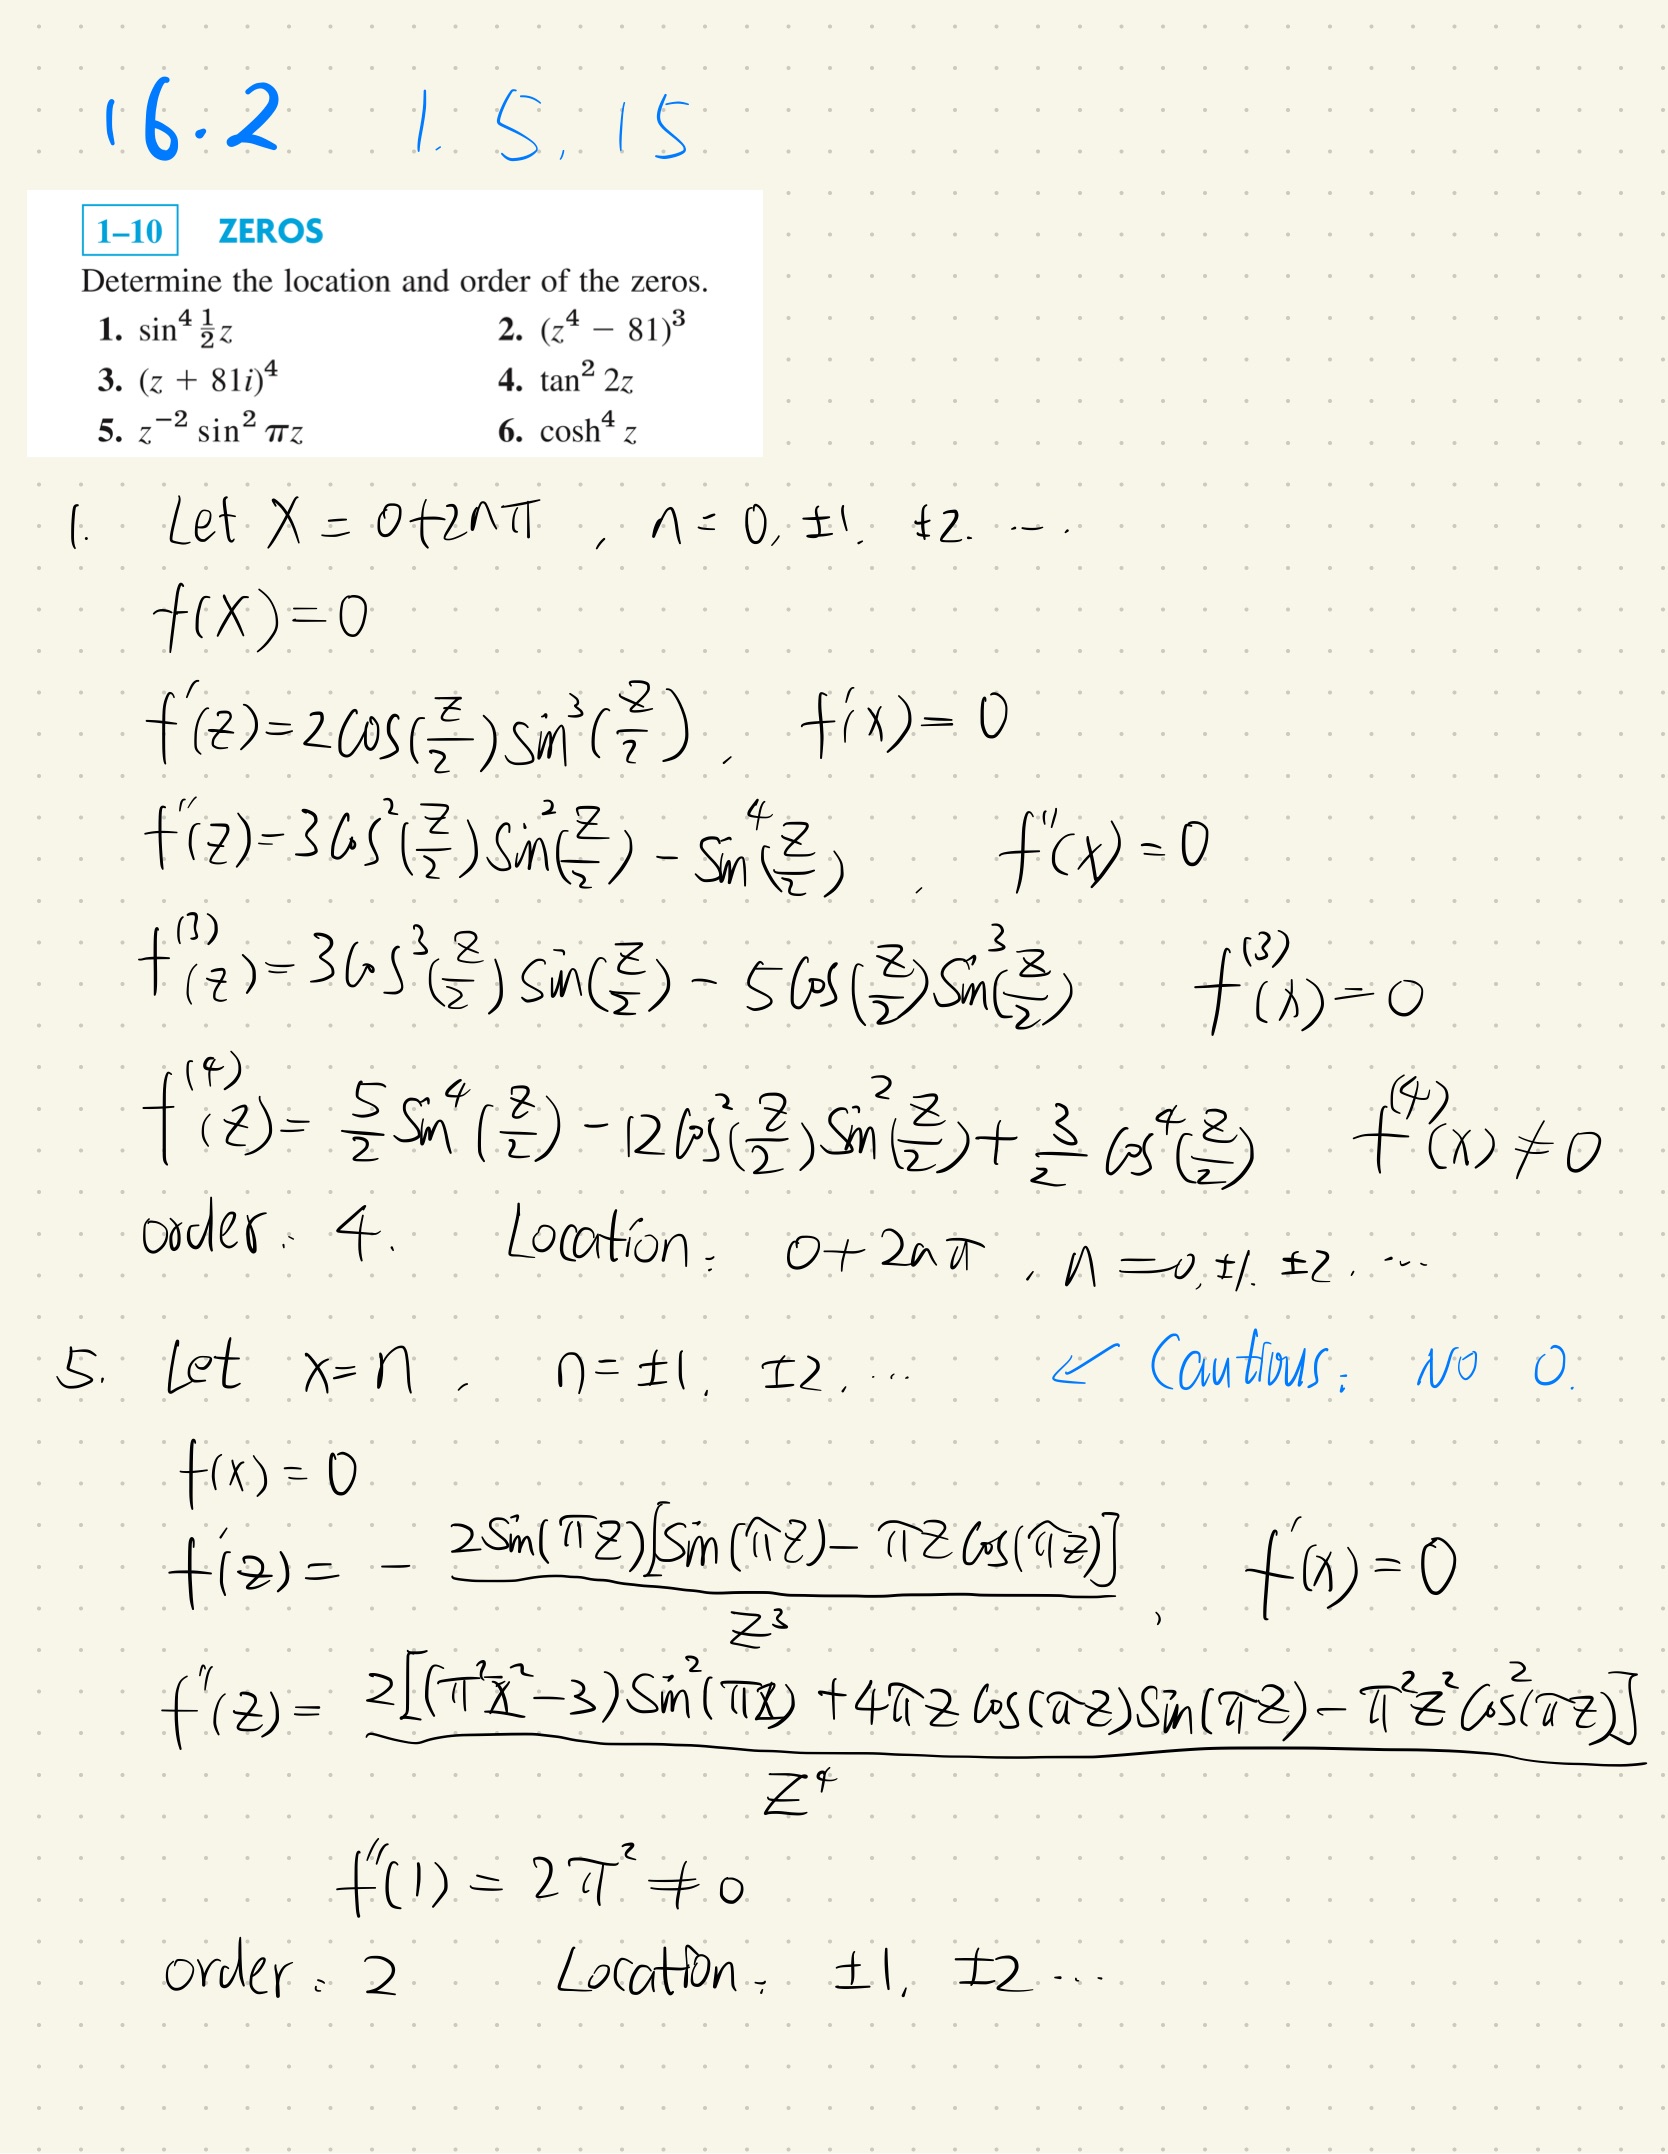 16.2 1. 5, 15
1–10 ZEROS
Determine the location and order of the zeros.
1. sin⁴ ½z 2. (z⁴ − 81)³
3. (z + 81i)⁴ 4. tan² 2z
5. z⁻² sin² πz 6. cosh⁴ z
1. Let X = 0+2nπ , n = 0, ±1, ±2. ...
f(X)=0
f'(z)=2cos(z/2)sin³(z/2), f'(x)=0
f''(z)=3cos²(z/2)sin²(z/2) − sin⁴(z/2), f''(x)=0
f⁽³⁾(z)=3cos³(z/2)sin(z/2) − 5cos(z/2)sin³(z/2) f⁽³⁾(x)=0
f⁽⁴⁾(z)= 5/2 sin⁴(z/2) − 12cos²(z/2)sin²(z/2) + 3/2 cos⁴(z/2) f⁽⁴⁾(x) ≠ 0
order: 4. Location: 0+2nπ, n=0, ±1, ±2, ...
5. Let x=n, n=±1, ±2, ... ↙ Cautious: NO 0.
f(x)=0
f'(z)= − 2sin(πz)[sin(πz) − πz cos(πz)] / z³, f'(x)=0
f''(z)= 2[(π²z²−3)sin²(πz) + 4πz cos(πz)sin(πz) − π²z²cos²(πz)] / z⁴
f''(1) = 2π² ≠ 0
order: 2 Location: ±1, ±2 ...